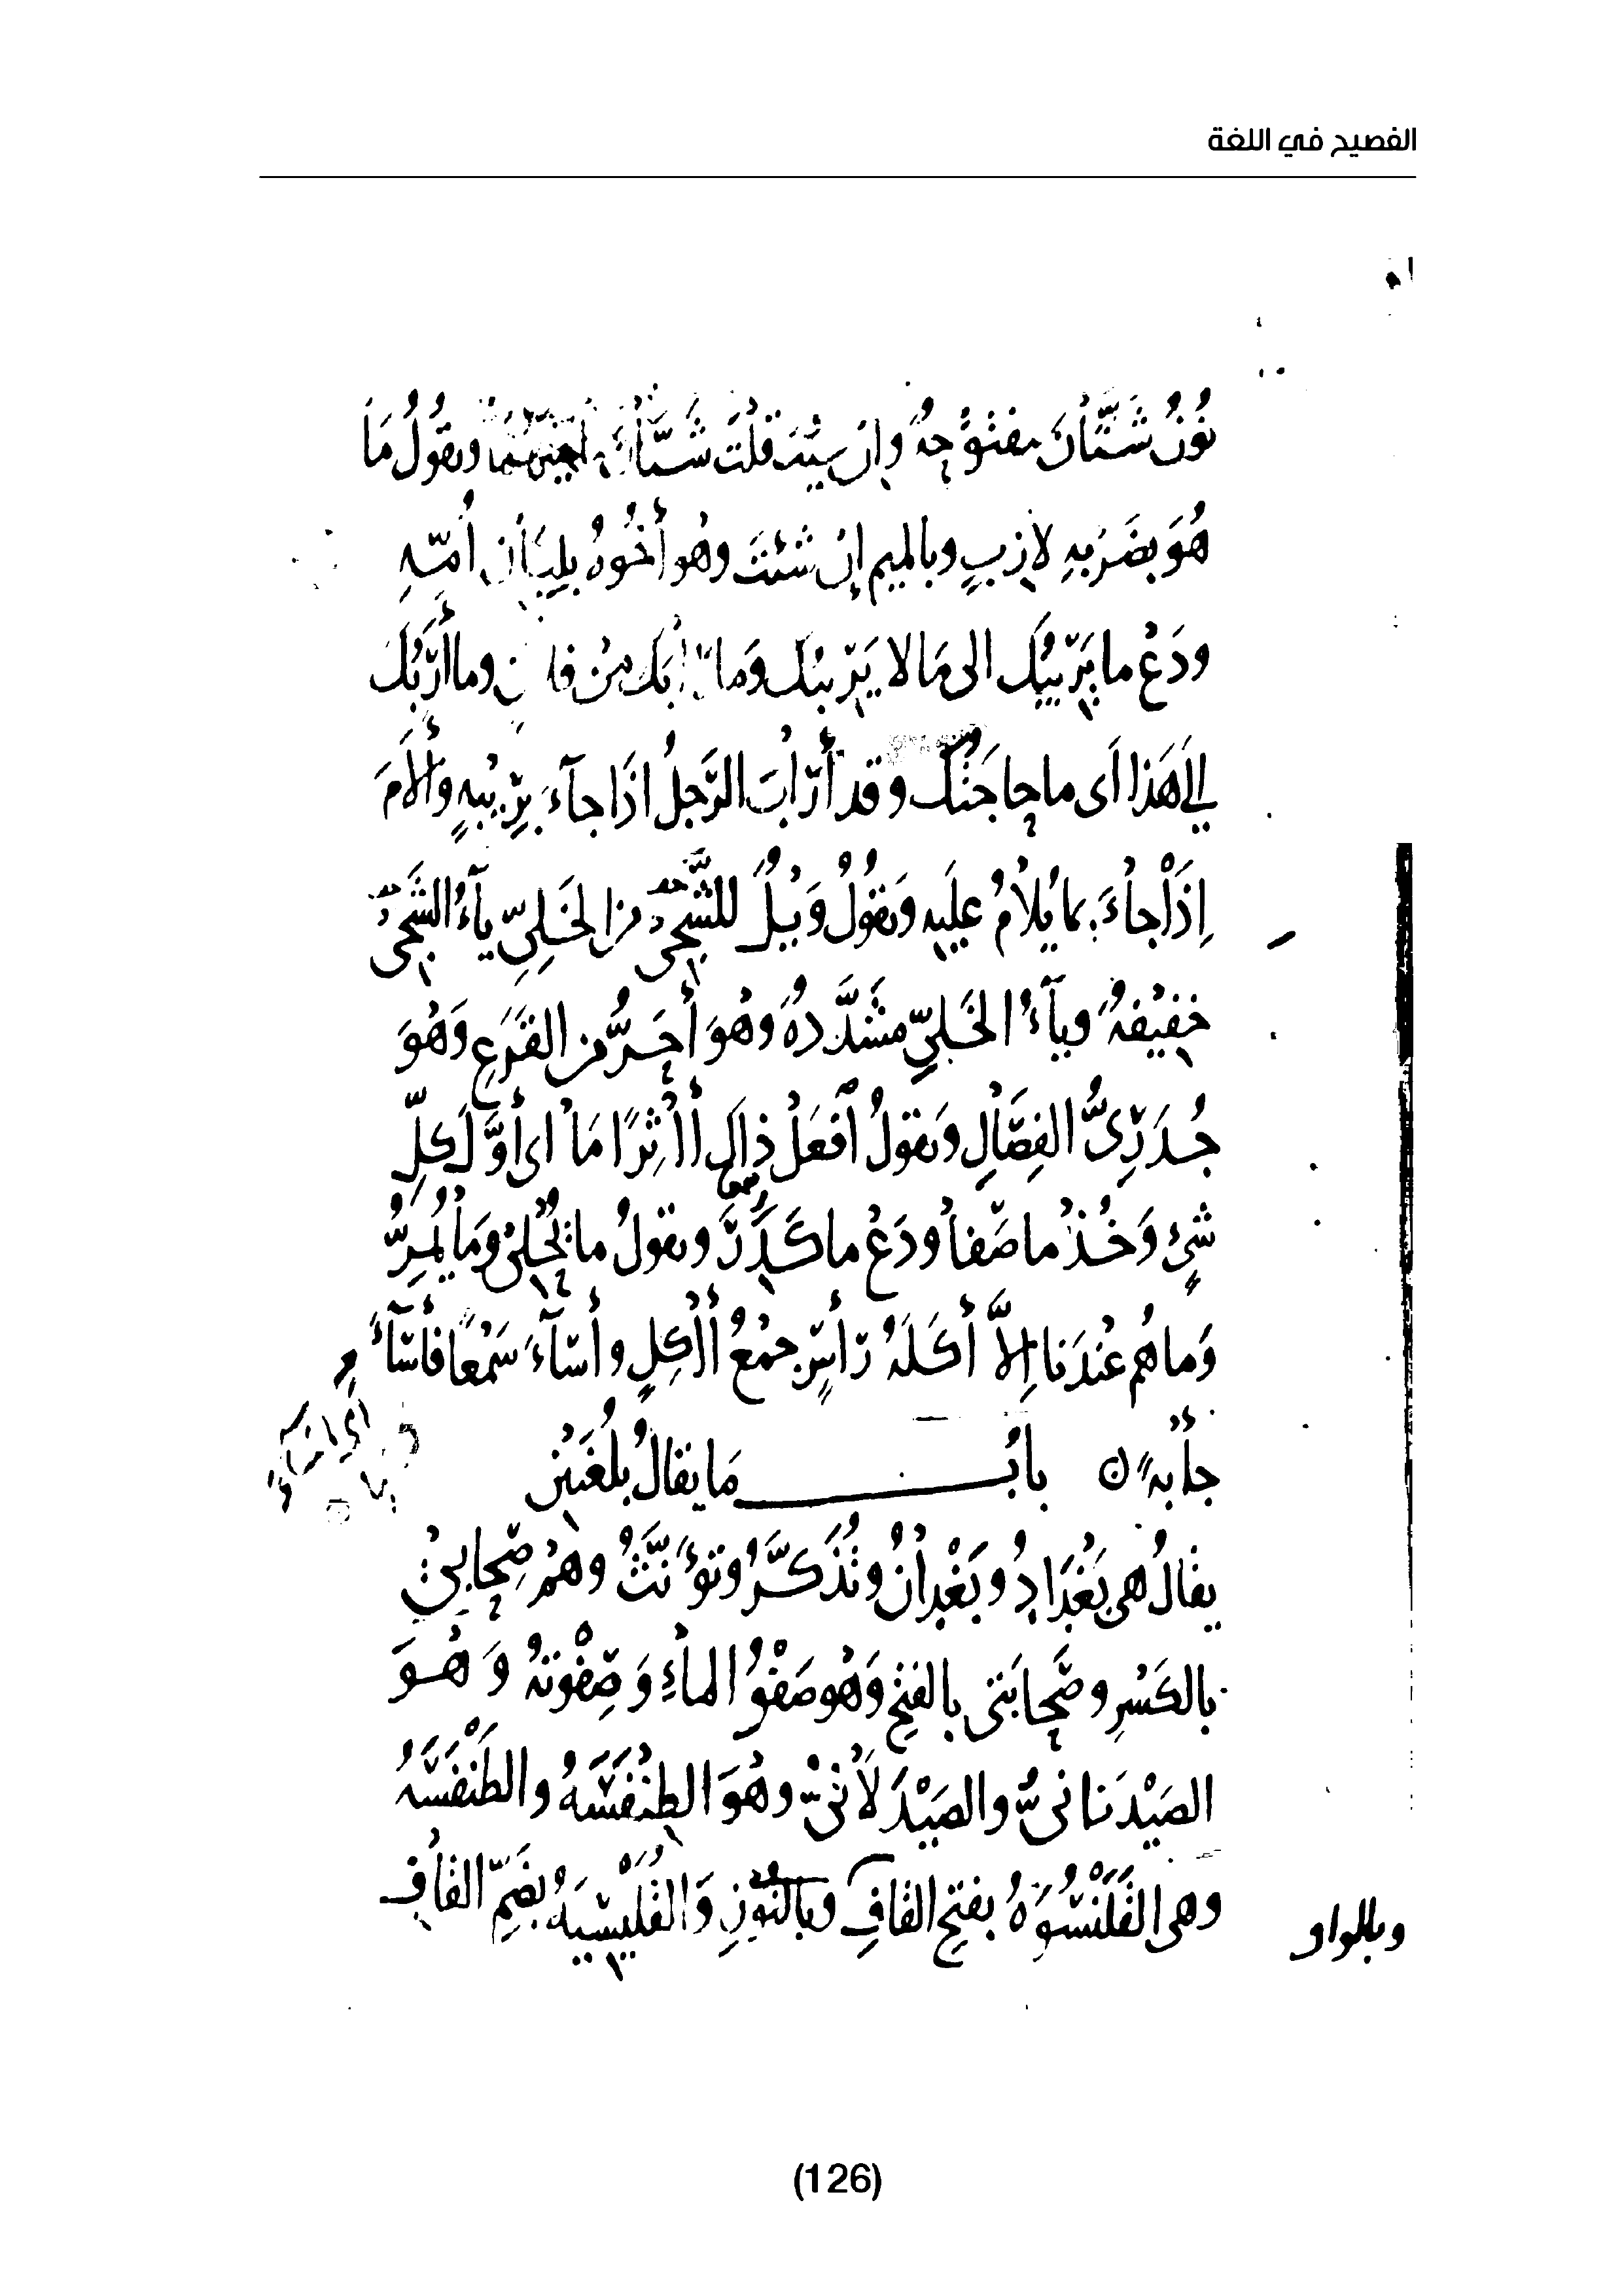 الفصيح في اللغة
نُونُ شَتَّانَ مفتوُحةٌ وإن شِئتَ قلتَ شتَّانَ ما هُمَا وتقُولُ مَا
هُوَ بضَرْبهِ لازِبٍ وبالميم إن شئتَ وهو أخُوهُ بلِبَانِ أمّهِ
ودَعْ ما يَرِيبُك الى مَا لا يَرِيبُك وَما رَابَك مِنْ فلانٍ وما أرَبُكَ
إلى هَذا أي ما حاجَتُك وقد أرابَ الرَّجلُ اذَا جآءَ برِيبهٍ وألامَ
اِذَا جاءَ بما يُلامُ عليَهِ وَتقُولُ وَيْلٌ للشَّجِي مِن الخَلِيّ يآءُ الشَّجِي
خفيْفهٌ ويآءُ الخَليِّ مشَدَّدهٌ وَهُوَ أحَرُّ من القَرَعِ وَهُوَ
جُدَرِيُّ الفِصَالِ وَتقولُ افعَلْ ذاك آثِرًا مَا اي أوَّلَ كلِّ
شيْءٍ وَخُذْ ما صَفا ودَعْ ما كَدِرَ وتقولُ ما يُحْلِيْ وَمَا يُمِرُّ
وَما هم عنْدَنا إلاَّ أكَلَهُ رَأسٍ جمْعُ آكِلٍ وأسَآءَ سَمْعًا فأسَآءَ
جابهً بابُ مَا يقالُ بلُغَتيْنِ
يقالُ هي بَغْدَادُ وبَغْدانُ وتُذَكَّرُ وتؤَنَّثُ وهُمْ صِحَابِيْ
بالكَسْرِ وصَحَابَتي بالفتحِ وَهُو صَفْوُ الماءِ وَصِفْوَتهُ وَهُوَ
الصَيْدَنانيُّ والصَيْدَلانيُّ وهُوَ الطِنْفَسَهُ والطَنْفَسَهُ
وهي القَلَنْسُوَهُ بفتحِ القافِ وبالنُونِ وَالقُلَيْسِيَهُ بضَمِّ القافِ
وبالواو
(126)